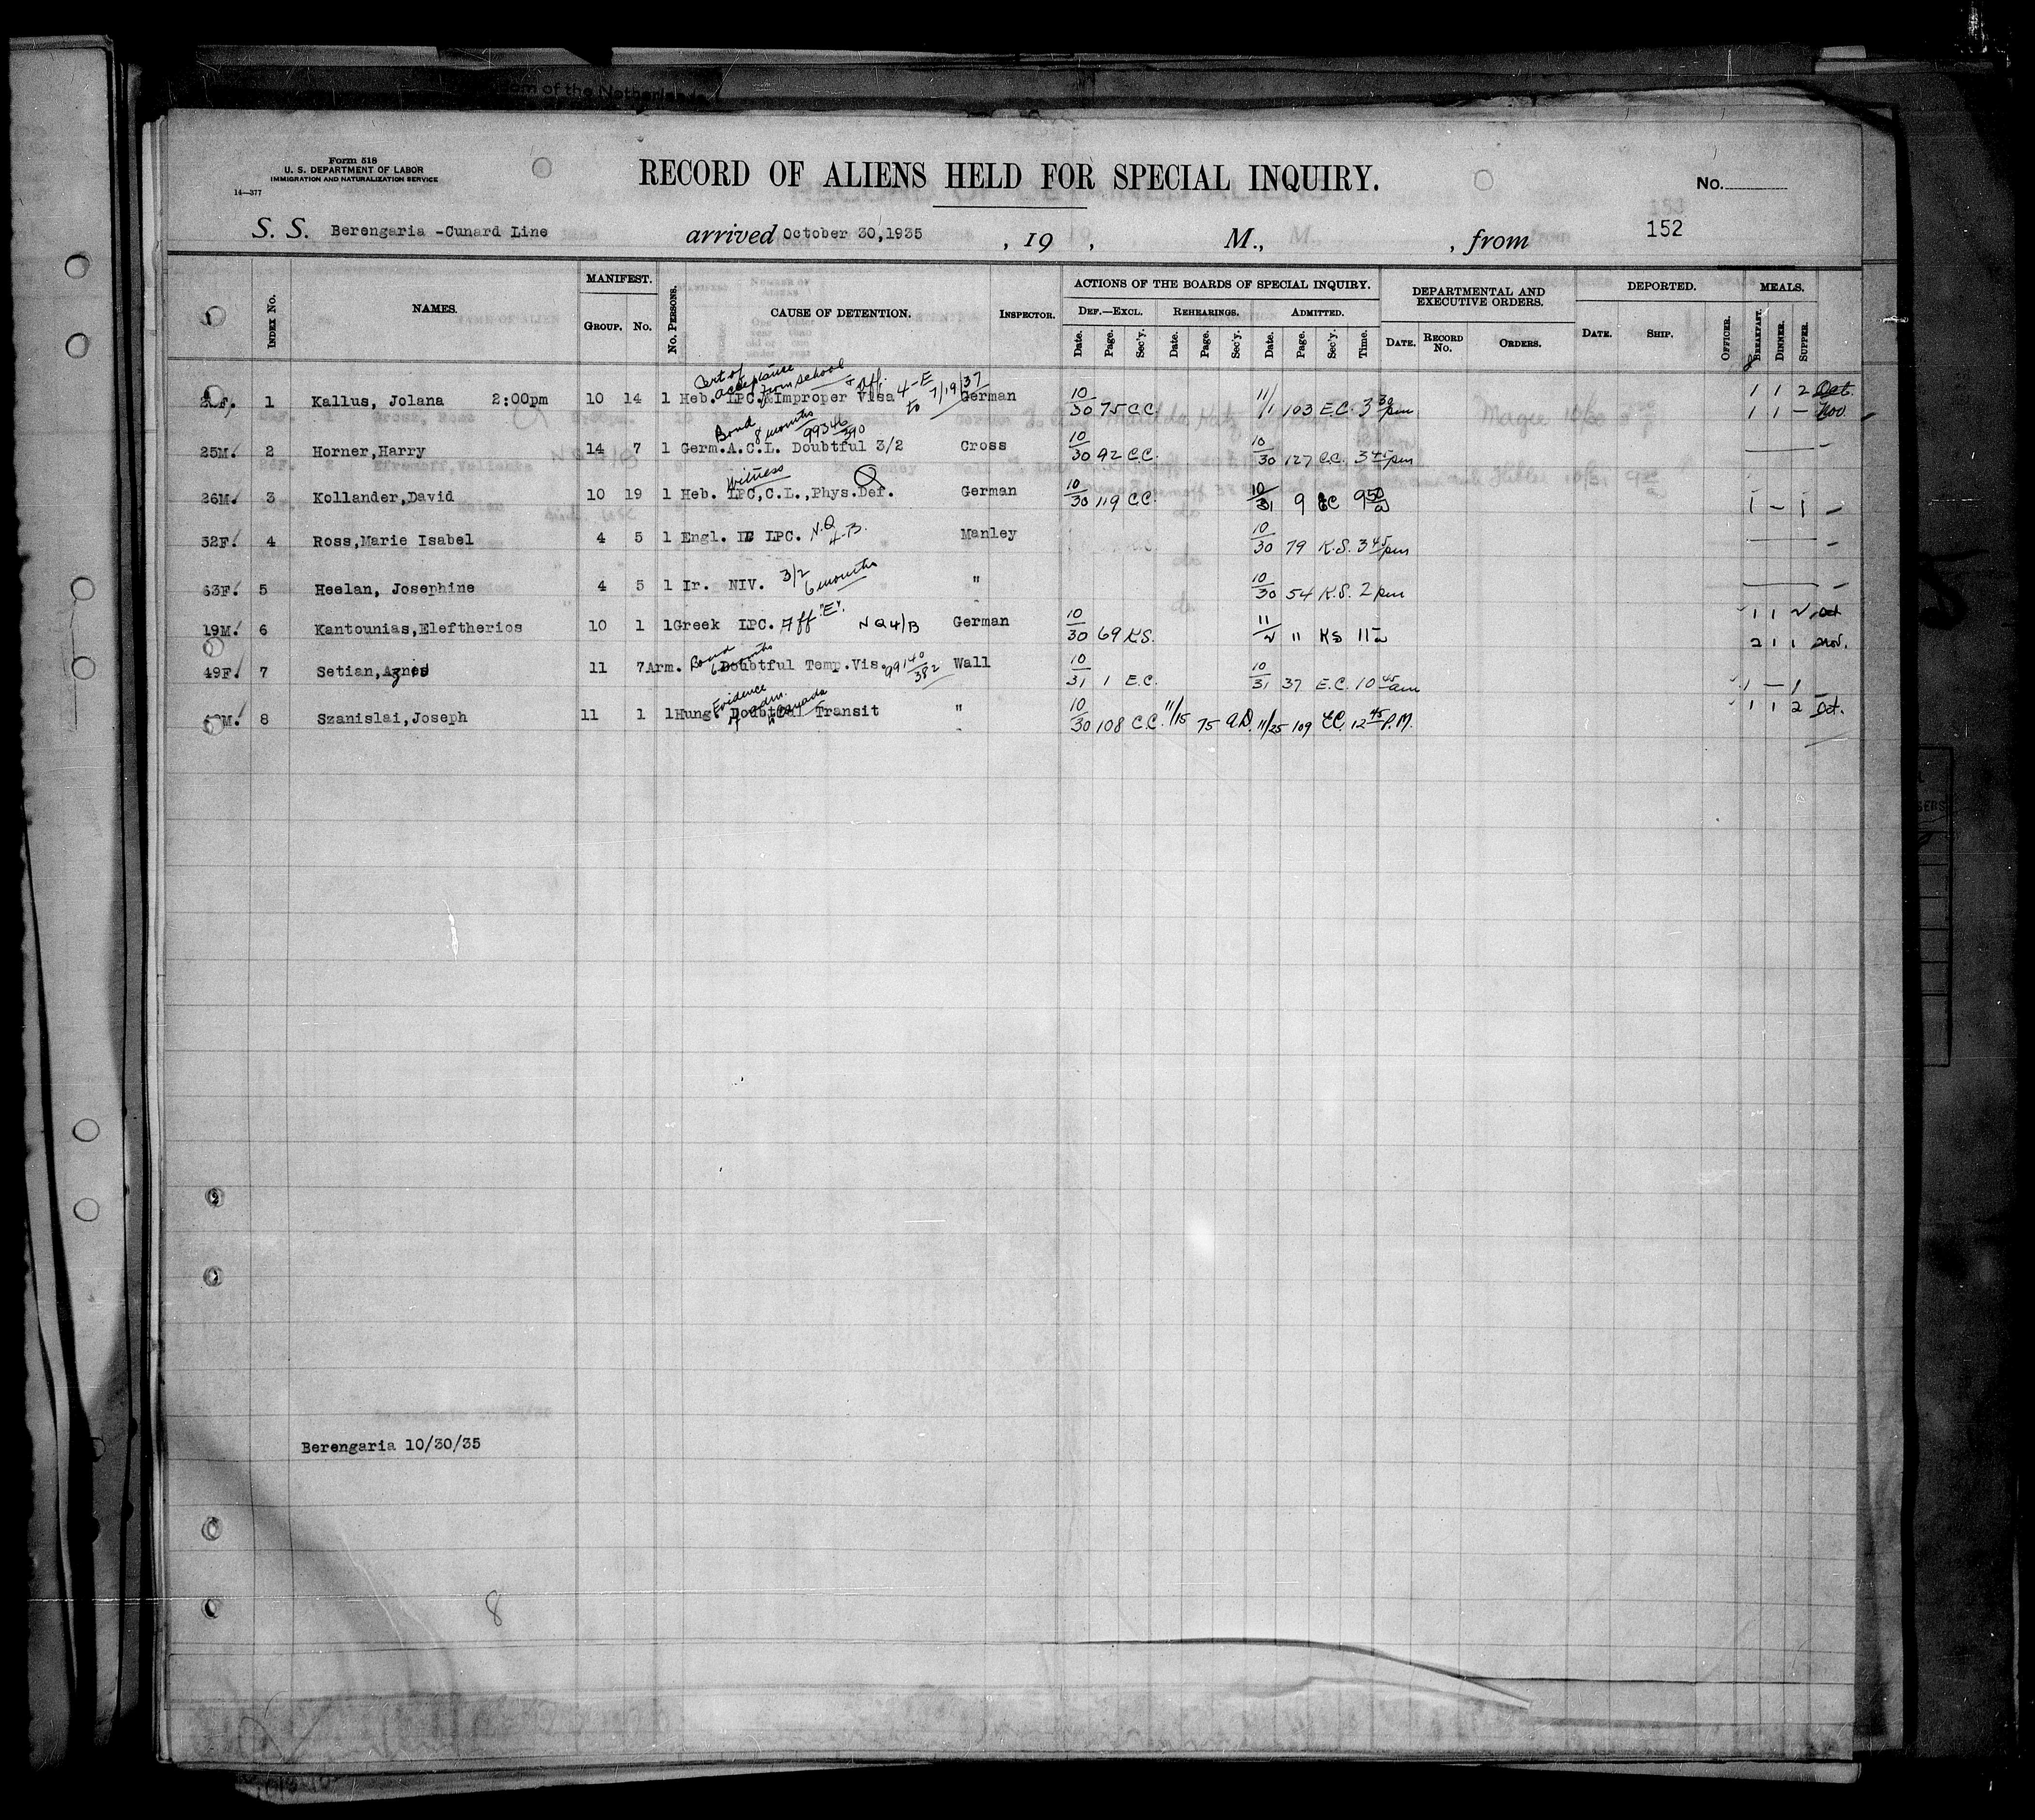 Form 518
U. S. DEPARTMENT OF LABOR
IMMIGRATION AND NATURALIZATION SERVICE
14—377
RECORD OF ALIENS HELD FOR SPECIAL INQUIRY.
No.
152
S. S. Berengaria -Cunard Line arrived October 30,1935 , 19 , M., , from
Index No. NAMES. MANIFEST. Group. No. No. Persons. CAUSE OF DETENTION. Inspector. ACTIONS OF THE BOARDS OF SPECIAL INQUIRY. DEPARTMENTAL AND EXECUTIVE ORDERS. DEPORTED. MEALS.
Def.—Excl. Rehearings. Admitted.
Date. Page. Sec'y. Date. Page. Sec'y. Date. Page. Sec'y. Time. Date. Record No. Orders. Date. Ship. Officer. Breakfast. Dinner. Supper.
Cert of acceptance from school & Aff. 4-E to 7/19/37
F. 1 Kallus, Jolana 2:00pm 10 14 1 Heb. LPC.&Improper Visa German 10/30 75 C.C. 11/1 103 E.C. 3 30 pm 1 1 2 Oct.
1 1 — Nov.
Bond 8 months 99346/390
25M. 2 Horner,Harry 14 7 1 Germ.A.C.L. Doubtful 3/2 Cross 10/30 92 C.C. 10/30 127 C.C. 3 45 pm
Witness
26M. 3 Kollander,David 10 19 1 Heb. LPC,C.L.,Phys.Def. German 10/30 119 C.C. 10/31 9 9 50 1 — 1 —
32F. 4 Ross,Marie Isabel 4 5 1 Engl. LPC. N.Q 4-B. Manley 10/30 79 K.S. 3 45 pm
63F. 5 Heelan, Josephine 4 5 1 Ir. NIV. 3/2 6 months " 10/30 54 K.S. 2 pm
19M. 6 Kantounias,Eleftherios 10 1 1Greek LPC. Aff "E". NQ4/B German 10/30 69 K.S. 11/2 11 KS 11 1 1 2 Oct
2 1 1 Nov.
Bond 6 months 99140/382
49F. 7 Setian,Agnes 11 7Arm. Doubtful Temp.Vis. Wall 10/31 1 E.C. 10/31 37 E.C. 10 45 am 1 — 1 —
Evidence of adm. to Canada
M. 8 Szanislai,Joseph 11 1 1Hung. Doubtful Transit " 10/30 108 C.C. 11/15 75 11/25 109 12 45 P.M. 1 1 2 Oct.
Berengaria 10/30/35
8